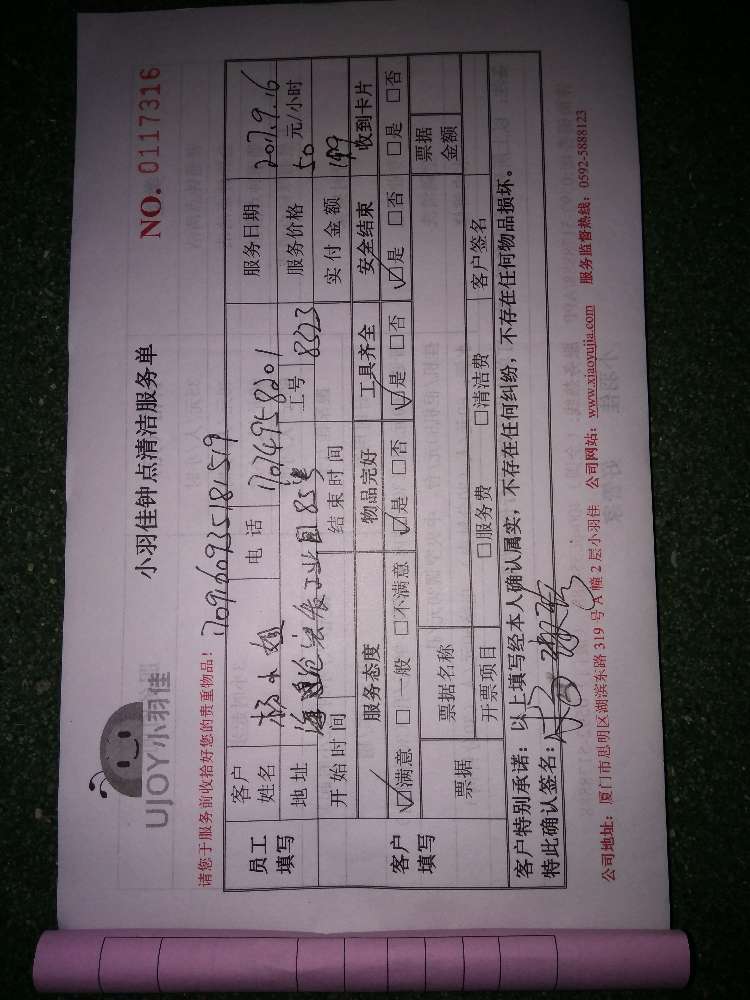 UJOY小羽佳
小羽佳钟点清洁服务单
NO. 0117316
请您于服务前收拾好您的贵重物品! 1709609351815519
员工填写 客户姓名 杨小姐 电话 17074958201 服务日期 2017.9.16
地址 海沧 工业园85号 工号 8323 服务价格 50元/小时
开始时间 结束时间 实付金额 149
客户填写 服务态度 物品完好 工具齐全 安全结束 收到卡片
☑满意 □一般 □不满意 ☑是 □否 ☑是 □否 ☑是 □否 □是 □否
票据 票据名称 票据金额
开票项目 □服务费 □清洁费 客户签名
客户特别承诺: 以上填写经本人确认属实,不存在任何纠纷,不存在任何物品损坏。
特此确认签名:
公司地址: 厦门市思明区湖滨东路 319 号 A 幢 2 层小羽佳 公司网站: www.xiaoyujia.com 服务监督热线: 0592-5888123